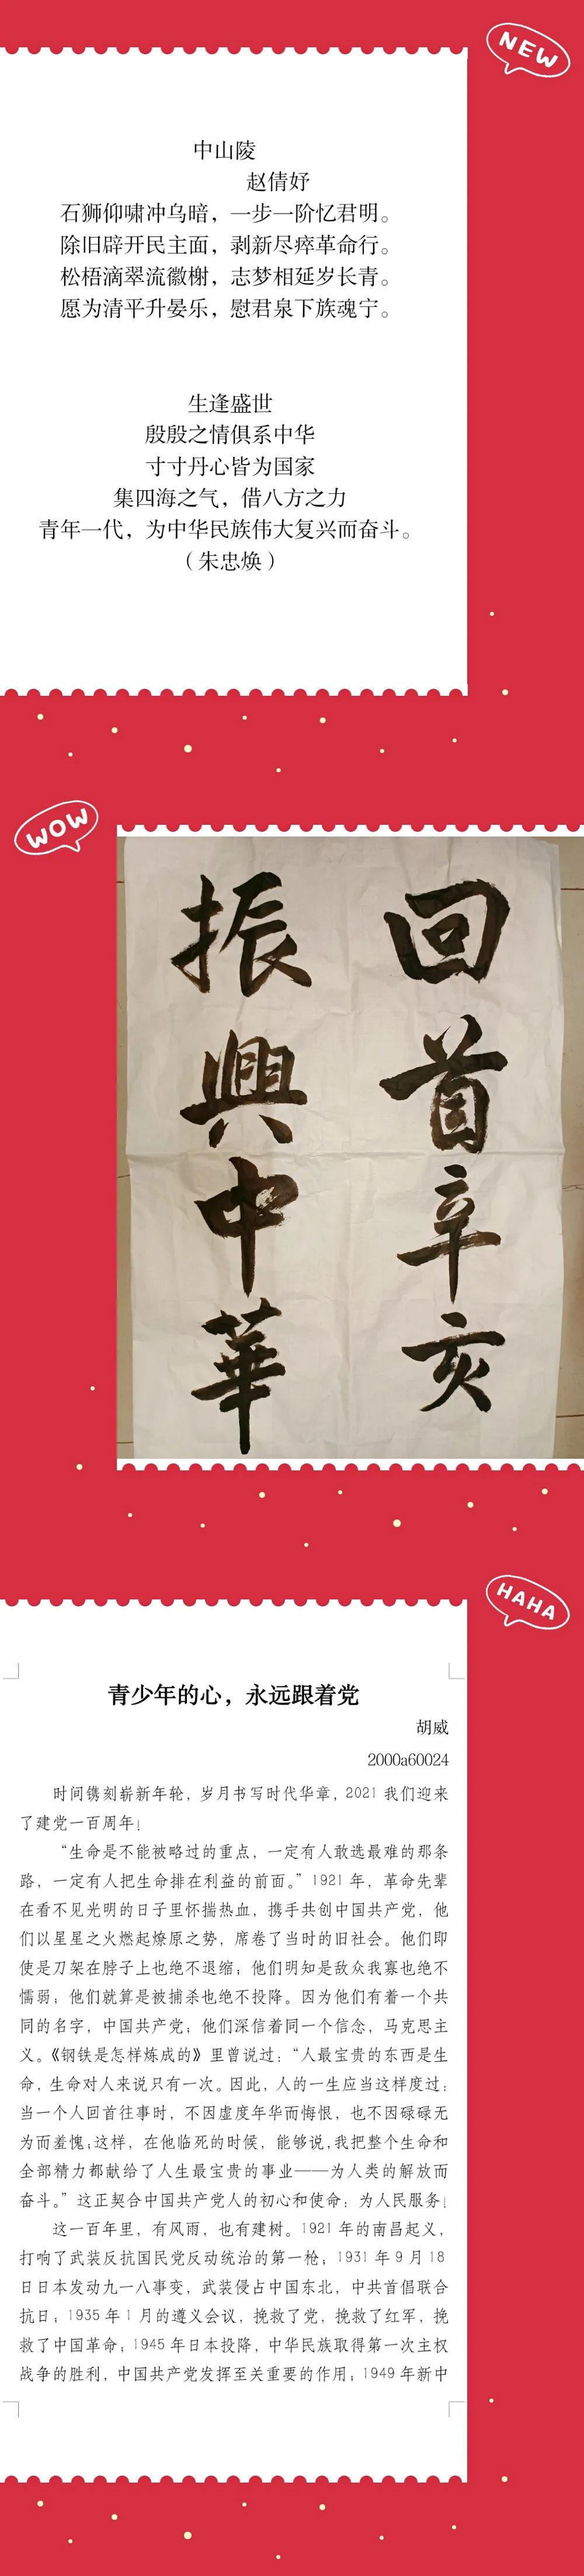 NEW
中山陵
赵倩妤
石狮仰啸冲乌暗，一步一阶忆君明。
除旧辟开民主面，剥新尽瘁革命行。
松梧滴翠流徽榭，志梦相延岁长青。
愿为清平升晏乐，慰君泉下族魂宁。
生逢盛世
殷殷之情俱系中华
寸寸丹心皆为国家
集四海之气，借八方之力
青年一代，为中华民族伟大复兴而奋斗。
（朱忠焕）
WOW
回首辛亥
振興中華
HAHA
青少年的心，永远跟着党
胡威
2000a60024
时间镌刻崭新年轮，岁月书写时代华章，2021 我们迎来
了建党一百周年！
“生命是不能被略过的重点，一定有人敢选最难的那条
路，一定有人把生命排在利益的前面。”1921 年，革命先辈
在看不见光明的日子里怀揣热血，携手共创中国共产党，他
们以星星之火燃起燎原之势，席卷了当时的旧社会。他们即
使是刀架在脖子上也绝不退缩；他们明知是敌众我寡也绝不
懦弱；他们就算是被捕杀也绝不投降。因为他们有着一个共
同的名字，中国共产党；他们深信着同一个信念，马克思主
义。《钢铁是怎样炼成的》里曾说过：“人最宝贵的东西是生
命，生命对人来说只有一次。因此，人的一生应当这样度过：
当一个人回首往事时，不因虚度年华而悔恨，也不因碌碌无
为而羞愧；这样，在他临死的时候，能够说，我把整个生命和
全部精力都献给了人生最宝贵的事业——为人类的解放而
奋斗。”这正契合中国共产党人的初心和使命：为人民服务！
这一百年里，有风雨，也有建树。1921 年的南昌起义，
打响了武装反抗国民党反动统治的第一枪；1931 年 9 月 18
日日本发动九一八事变，武装侵占中国东北，中共首倡联合
抗日；1935 年 1 月的遵义会议，挽救了党，挽救了红军，挽
救了中国革命；1945 年日本投降，中华民族取得第一次主权
战争的胜利，中国共产党发挥至关重要的作用；1949 年新中